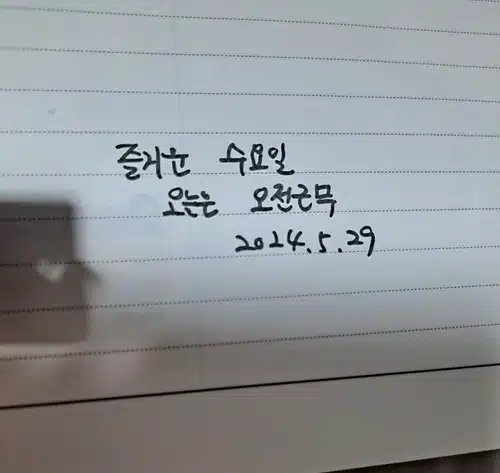 즐거운 수요일
오늘은 오전근무
2024.5.29